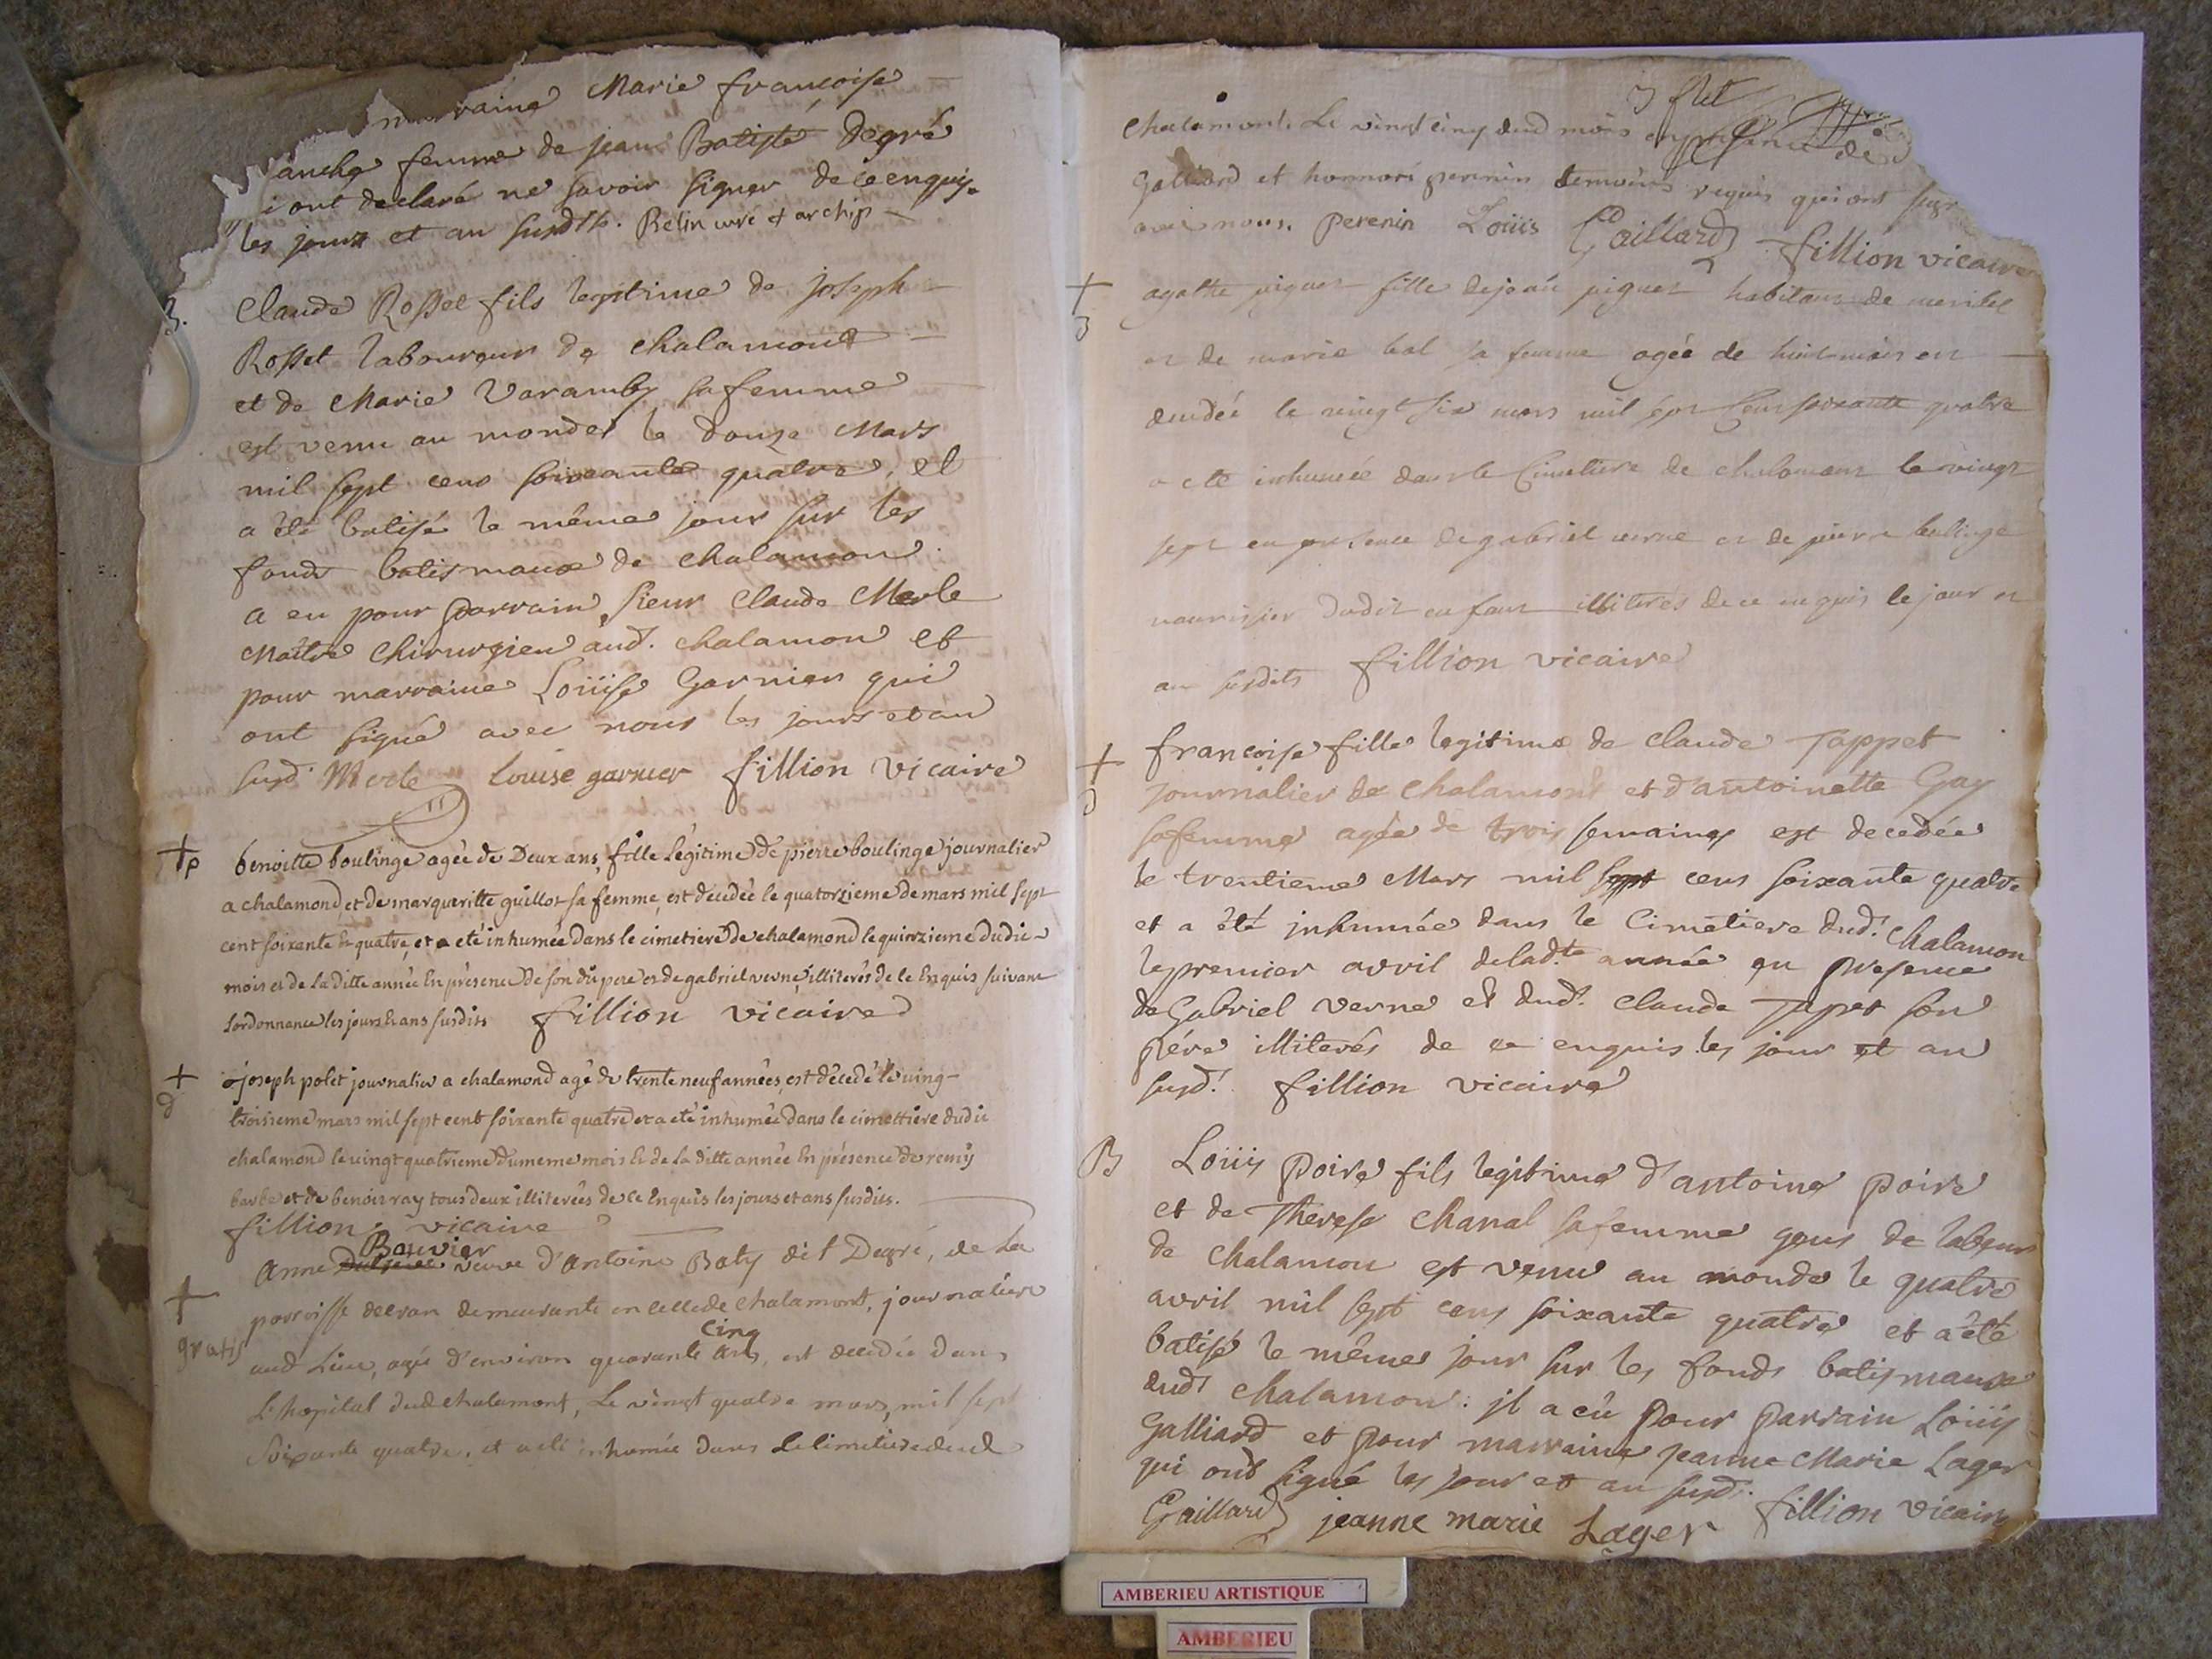 marraine Marie francoise
anche femme de jean Batiste Degré
i ont declaré ne savoir signer de ce enquis
les jours et an susdts. Belin curé et archip
B. Claude Rosset fils legitime de joseph
Rosset laboureur de chalamont
et de Marie Varamby sa femme
est venu au monde le douze Mars
mil sept cens soixante quatre, et
a été batisé le même jour sur les
fonds batismaux de chalamon.
a eu pour parrain sieur Claude Merle
Maître Chirurgien aud. chalamon et
pour marraine Loüise Garnier qui
ont signé avec nous les jours et an
susd. Merle Louise garnier fillion vicaire
+ p benoitte boulinge agée de Deux ans, fille légitime de pierre boulinge journalier
a chalamond, et de margueritte guillot sa femme, est décedée le quatorzieme de mars mil sept
cent soixante et quatre, et a eté inhumée dans le cimetiere de chalamond le quinzieme dudit
mois et de la ditte année En présence de son dit pere et de gabriel verne, illiterés de le Enquis suivant
lordonnance les jours et ans susdits fillion vicaire
+ d joseph polet journalier a chalamond agé de trente neuf années, est décedé le ving-
troisieme mars mil sept cent soixante quatre et a eté inhumée dans le cimettiere dudit
chalamond le vingt quatrieme du meme mois et de la ditte année En présence de remy
barbe et de benoit ray tous deux illiterées de ce Enquis les jours et ans susdits.
fillion vicaire
Bouvier
+ Anne veuve d'Antoine Baty dit Degré, de la
parroisse de cran demeurante en celle de chalamont, journaliere
cinq
gratis aud Lieu, agée d'environ quarante ans, est decedée dans
L'hopital dud chalamont, Le vingt quatre mars, mil sept
Soixante quatre, et a eté inhumée dans le cimetiere dud
chalamont. Le vingt cinq dud mois en presence de
Galliard et honnoré perenin temoins requis qui ont sign
avec nous. perenin Loüis Gaillard fillion vicaire
+ agathe piguet fille de jean piguet habitant de
et de marie bal sa femme agée de huit mois est
decedée le vingt six mars mil sept Cens soixante quatre
a eté inhumée dans le Cimetiere de chalamont le vingt
sept en presence de gabriel verne et de pierre boulinge
nourissier dudit enfant illiterés de ce enquis le jour et
an susdits fillion vicaire
+ d francoise fille legitime de Claude Tappet
journalier de chalamont et d'antoinette Gay
sa femme agée de trois semaines est decedée
le trentieme Mars mil sept cens soixante quatre
et a été inhumée dans le Cimetiere dud. Chalamon
le premier avril de lad.te année en presence
de Gabriel verne et dud. Claude Tapet son
pére illiterés de ce enquis les jour et an
susd. fillion vicaire
B Loüis poire fils legitime d'antoine poire
et de Therese Chanal sa femme gens de labeur
de Chalamon est venu au monde le quatre
avril mil sept cens soixante quatre et a été
batisé le même jour sur les fonds batismaux
dud Chalamon: il a eû pour parrain Loüis
Galliard et pour marraine jeanne Marie Lager
qui ont signé les jour et an susd.
Gaillard jeanne marie Lager fillion vicaire
AMBERIEU ARTISTIQUE
AMBERIEU